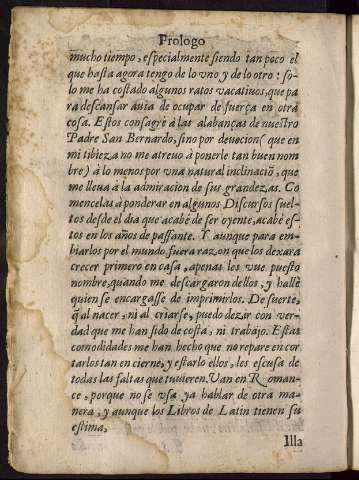 Prologo
mucho tiempo, especialmente siendo tan poco el
que hasta agora tengo de lo vno y de lo otro: so-
lo me ha costado algunos ratos vacatiuos, que pa
ra descansar auia de ocupar de fuerça en otra
cosa. Estos consagrè a las alabanças de nuestro
Padre San Bernardo, sino por deuocion (que en
mi tibieza no me atreuo à ponerle tan buen nom
bre) à lo menos por vna natural inclinaciõ, que
me lleua à la admiracion de sus grandezas. Co
mencelas à ponderar en algunos Discursos suel-
tos desde el dia que acabè de ser oyente, acabè es-
tos en los años de passante. Y aunque para em-
biarlos por el mundo fuera razon que los dexara
crecer primero en casa, apenas les vue puesto
nombre, quando me descargaron dellos, y hallè
quien se encargasse de imprimirlos. De suerte,
q̃ al nacer, ni al criarse, puedo dezir con ver-
dad que me han sido de costa, ni trabajo. Estas
comodidades me han hecho que no repare en cor
tarlos tan en cierne, y estarlo ellos, les escusa de
todas las faltas que tuuieren. Van en Roman-
ce, porque no se vsa ya hablar de otra ma-
nera, y aunque los Libros de Latin tienen su
estima,
Illa